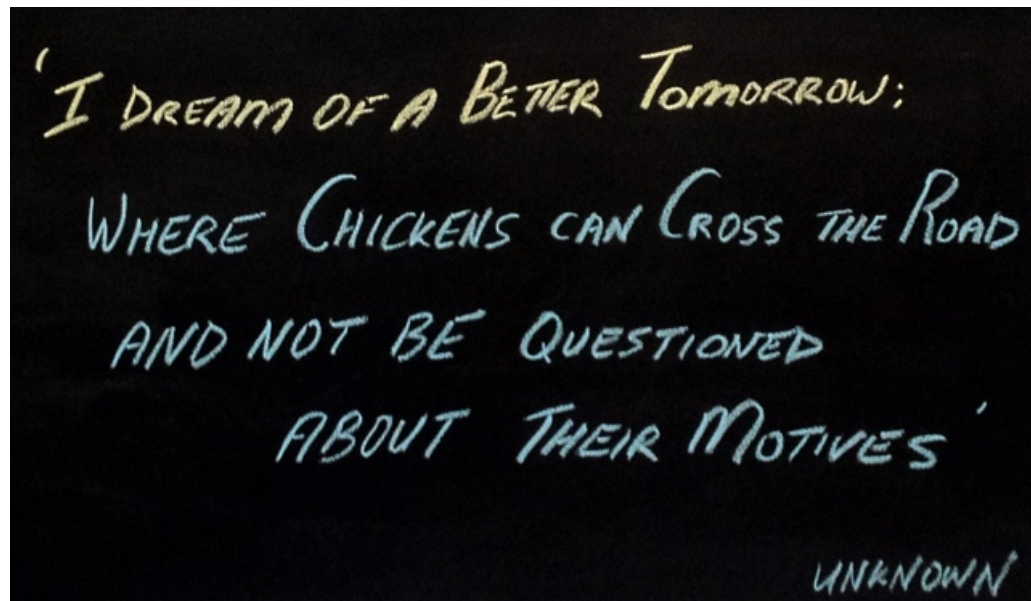 'I DREAM OF A BETTER TOMORROW:
WHERE CHICKENS CAN CROSS THE ROAD
AND NOT BE QUESTIONED
ABOUT THEIR MOTIVES'
UNKNOWN